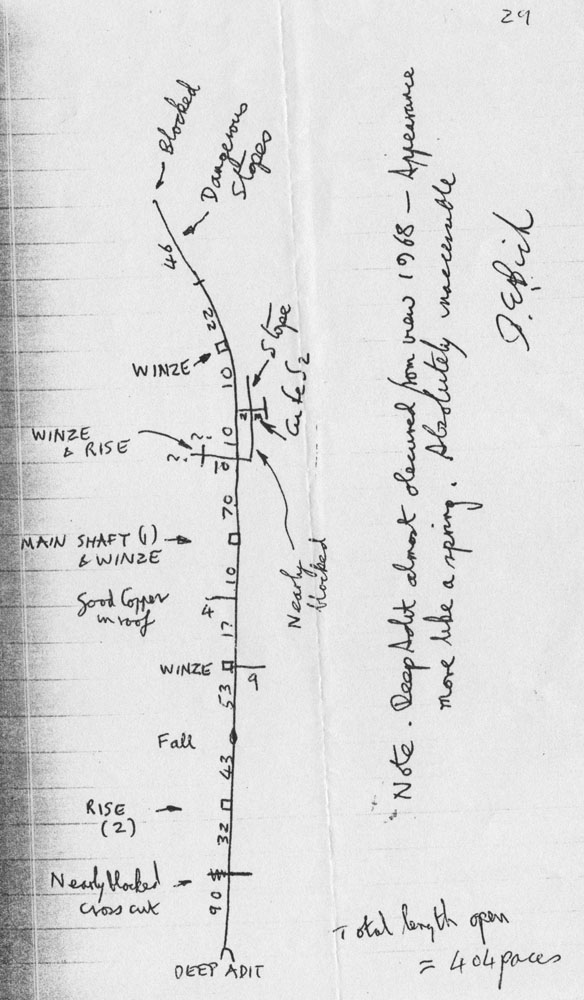 29
Blocked
Dangerous
Stopes
46
22
WINZE
10
Stope
Cu Fe S2
WINZE
& RISE
?
?
10
10
70
MAIN SHAFT (1)
& WINZE
10
Nearly
blocked
Good Copper
in roof
4
17
WINZE
9
53
Fall
43
RISE
(2)
32
Nearly blocked
Cross cut
90
DEEP ADIT
Note. Deep Adit almost obscured from view 1968 – Appearance
more like a spring. Absolutely inaccessible
Total length open
= 404 paces